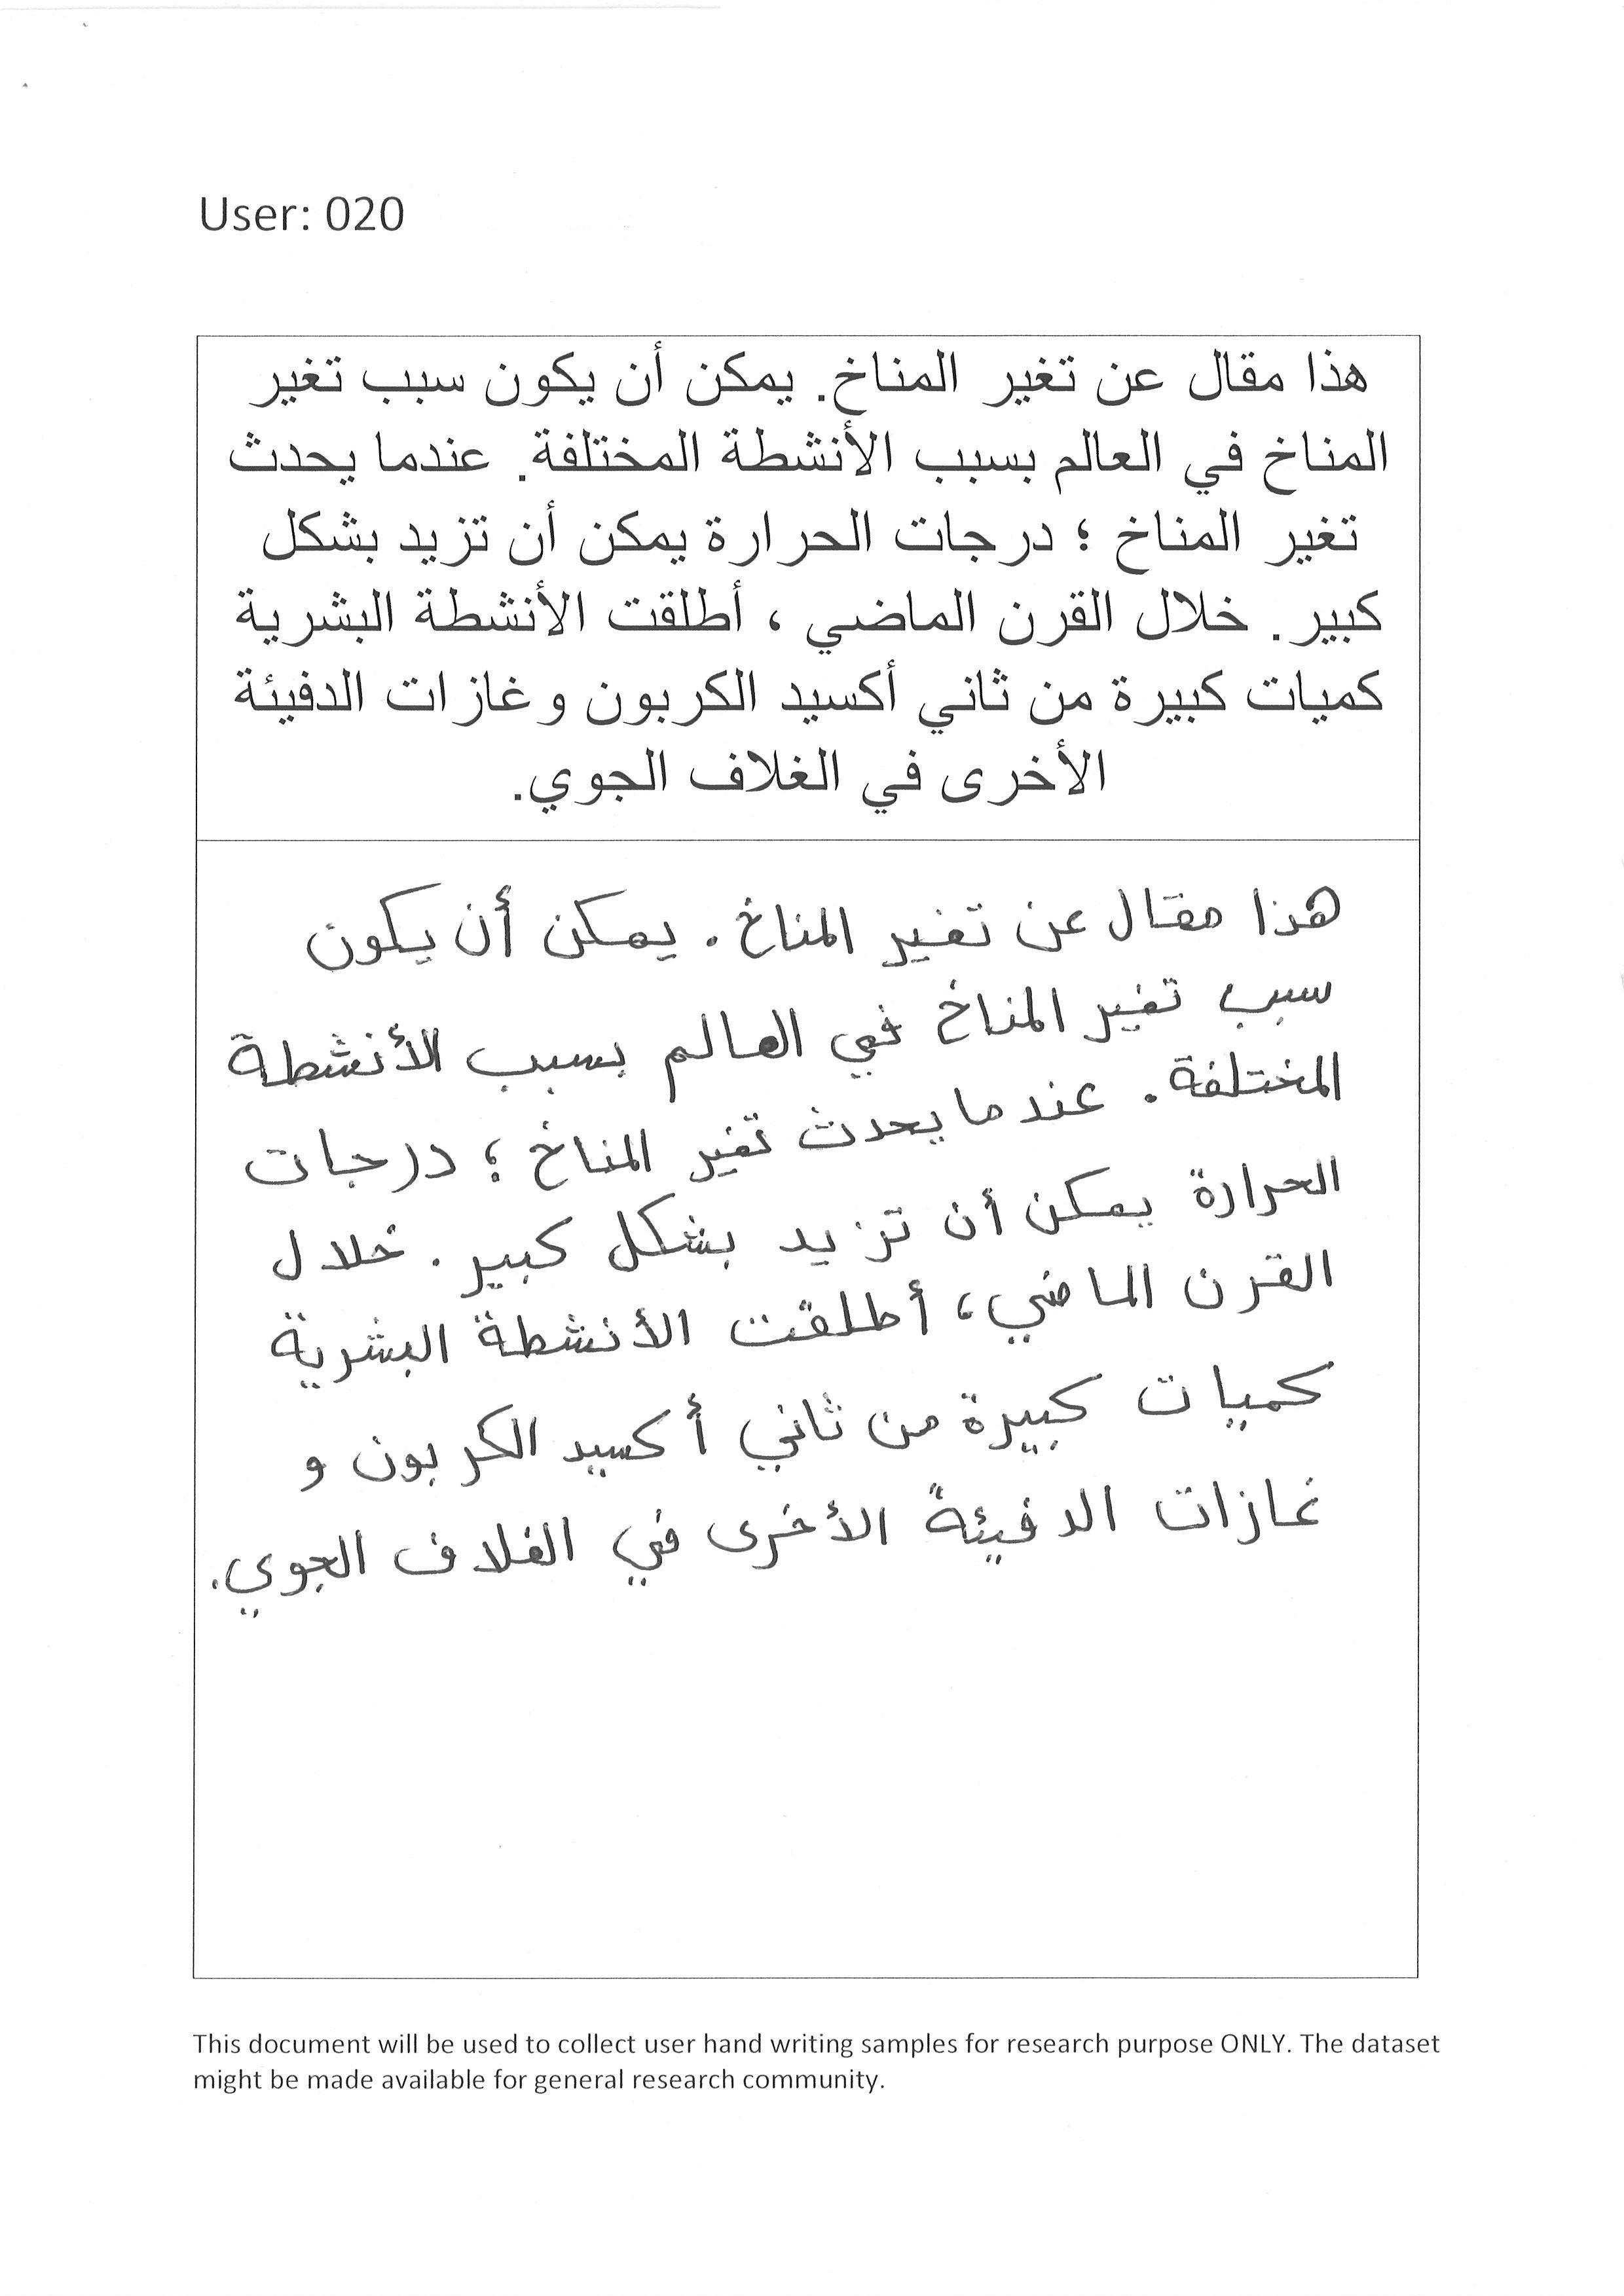 User: 020
هذا مقال عن تغير المناخ. يمكن أن يكون سبب تغير
المناخ في العالم بسبب الأنشطة المختلفة. عندما يحدث
تغير المناخ ؛ درجات الحرارة يمكن أن تزيد بشكل
كبير. خلال القرن الماضي ، أطلقت الأنشطة البشرية
كميات كبيرة من ثاني أكسيد الكربون و غازات الدفيئة
الأخرى في الغلاف الجوي.
هذا مقال عن تغير المناخ. يمكن أن يكون
سبب تغير المناخ في العالم بسبب الأنشطة
المختلفة. عندما يحدث تغير المناخ ؛ درجات
الحرارة يمكن أن تزيد بشكل كبير. خلال
القرن الماضي، أطلقت الأنشطة البشرية
كميات كبيرة من ثاني أكسيد الكربون و
غازات الدفيئة الأخرى في الغلاف الجوي.
This document will be used to collect user hand writing samples for research purpose ONLY. The dataset
might be made available for general research community.